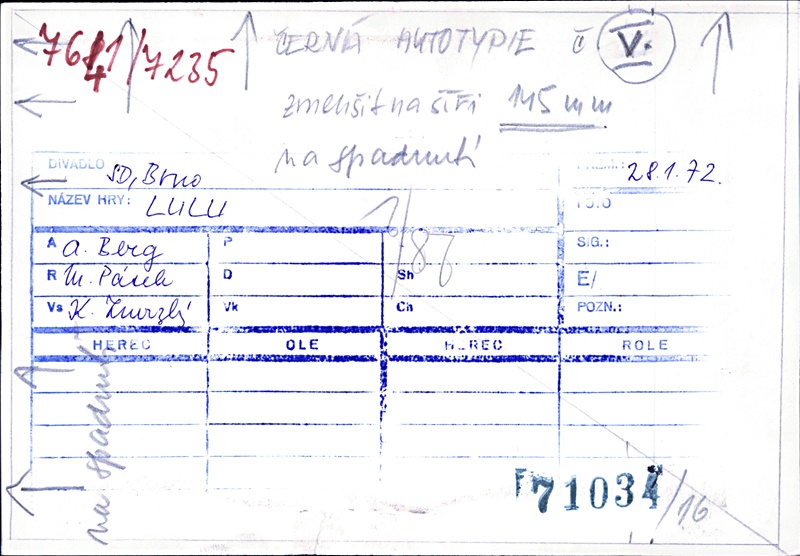 7641/7235
ČERNÁ AUTOTYPIE Č V.
zmenšit na šíři 145 mm
na spadnutí
DIVADLO SD, Brno
PREM.: 28.1.72.
NÁZEV HRY: LULU
FOTO
A A. Berg P SIG.:
R M. Pásek D Sh E/
Vs Vk Ch POZN.:
HEREC ROLE HEREC ROLE
na spadnutí
F 71034/16